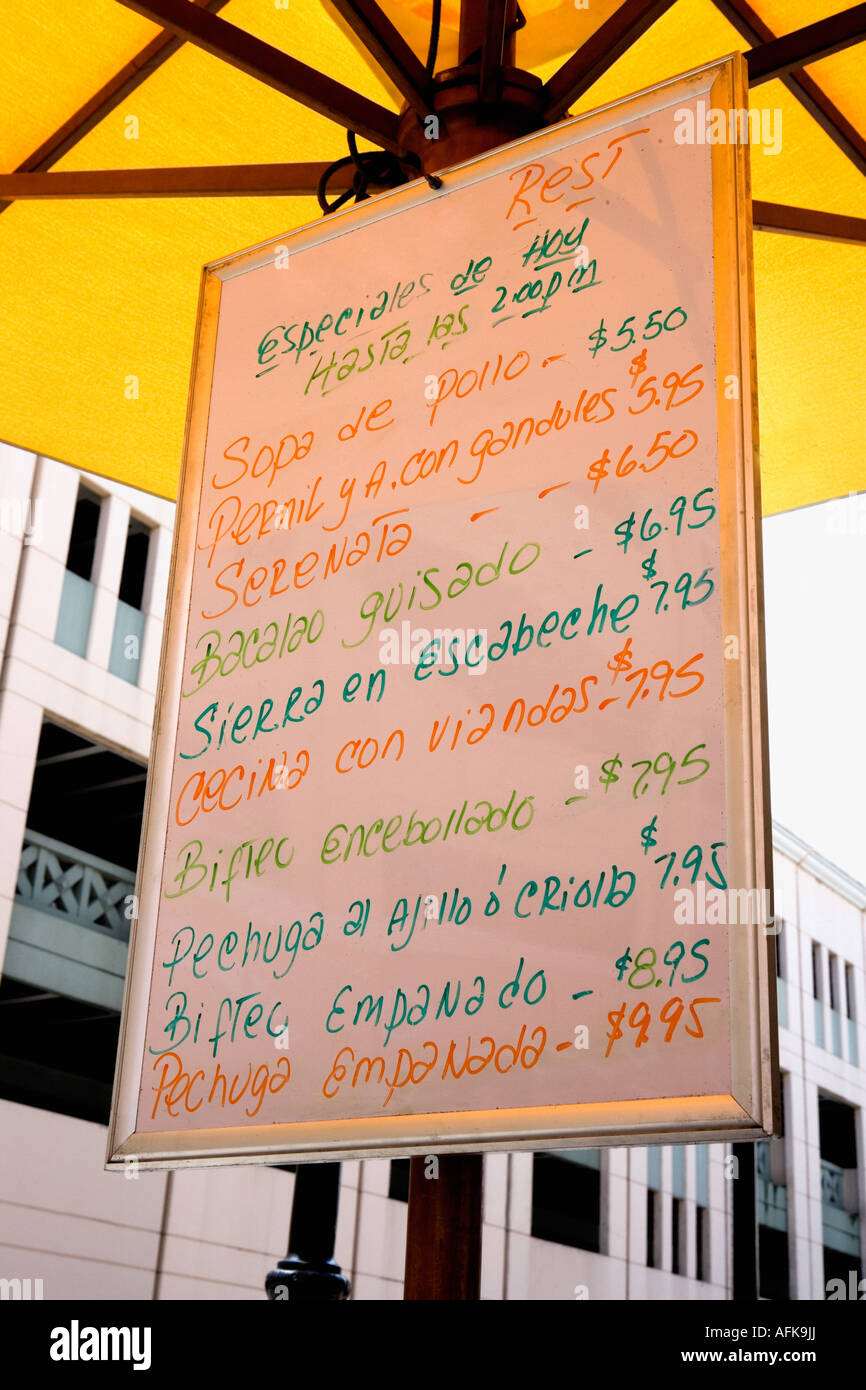 Rest
Especiales de Hoy
Hasta las 2:00pm
Sopa de pollo - $5.50
Pernil y A. con gandules $5.95
Serenata - - $6.50
Bacalao guisado - $6.95
Sierra en Escabeche $7.95
Cecina con viandas - $7.95
Biftec Encebollado - $7.95
Pechuga al Ajillo ó CRiolla $7.95
Biftec Empanado - $8.95
Pechuga Empanada - $9.95
alamy
alamy
Image ID: AFK9JJ
www.alamy.com